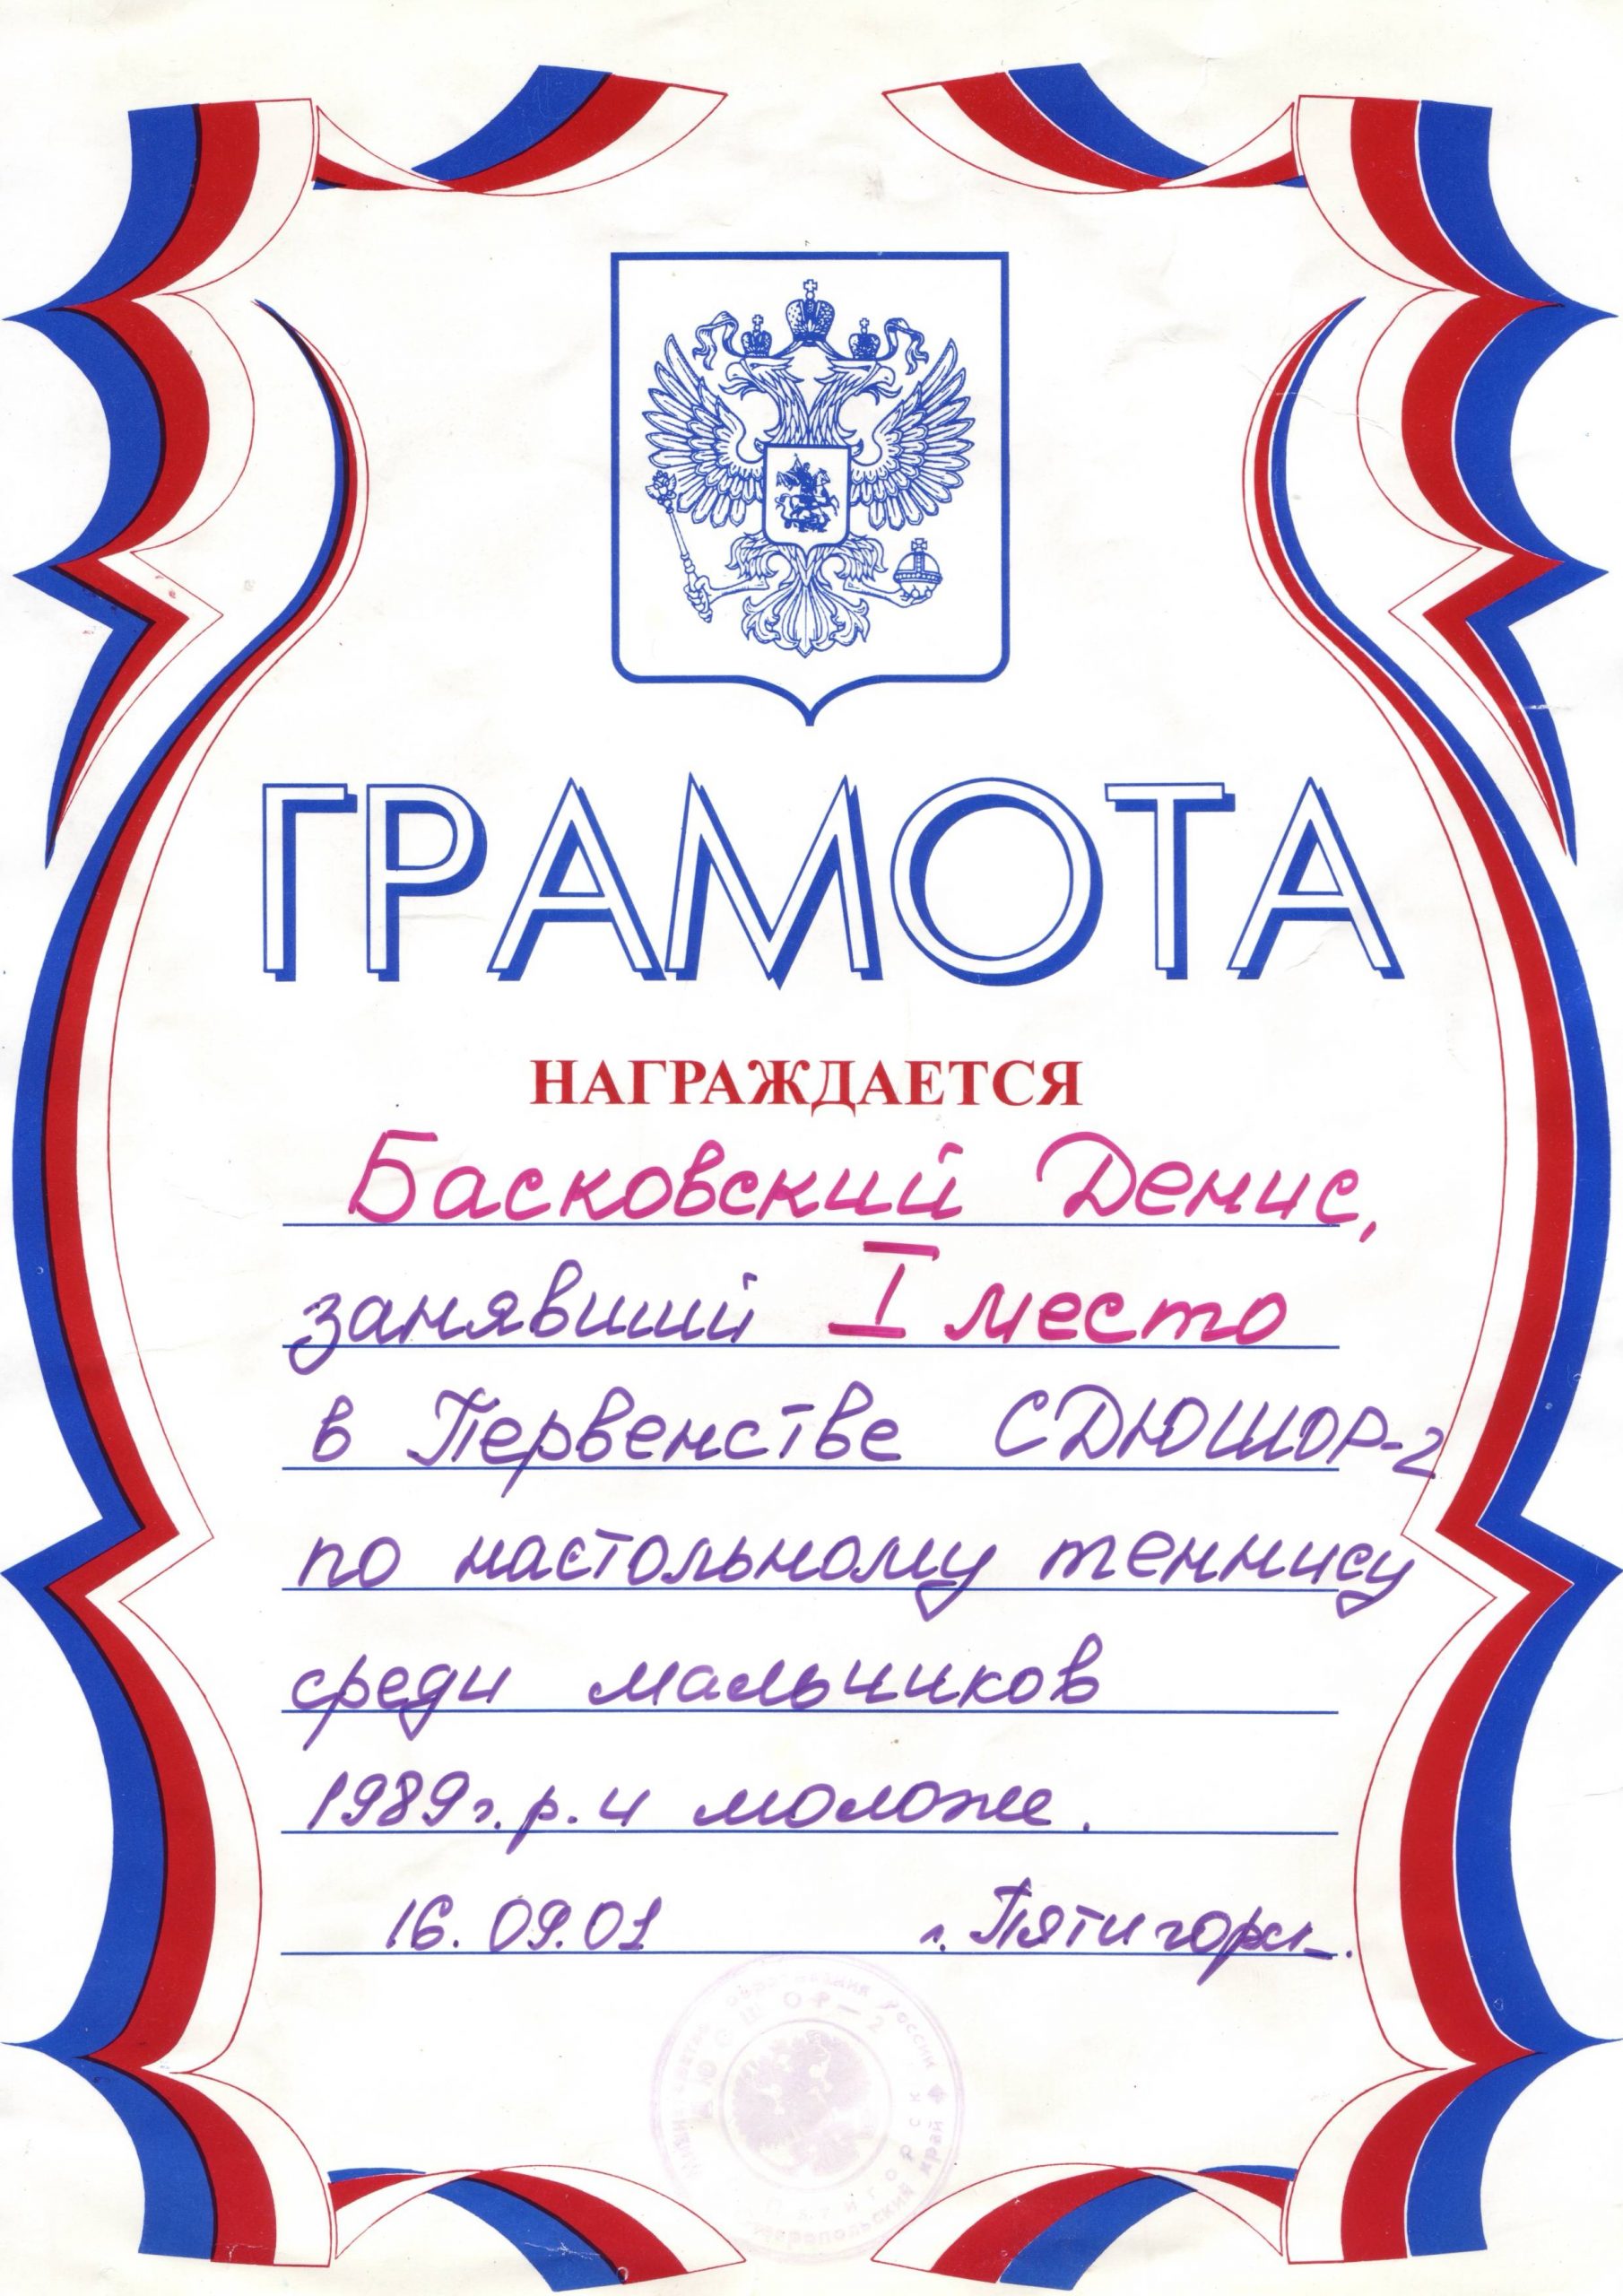 ГРАМОТА
НАГРАЖДАЕТСЯ
Басковский Денис,
занявший I место
в Первенстве СДЮШОР-2
по настольному теннису
среди мальчиков
1989г.р. и моложе.
16.09.01 г. Пятигорск.
образования России
ОР-2
край
Пятигорск